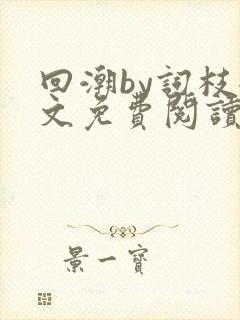 回潮by詞枝
文免費閱讀
景一寶